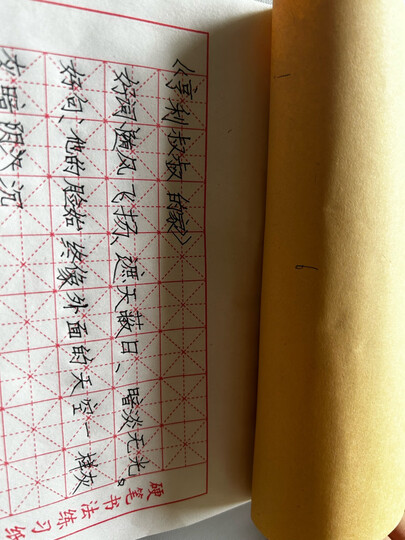 《亨利叔叔的家》
好词随风飞扬、遮天蔽日、暗淡无光。
好句、他的脸始终像外面的天空一样灰
暗 沉
硬笔书法练习纸